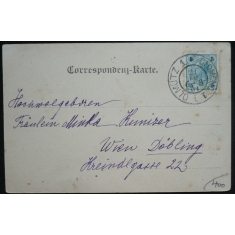 Correspondenz-Karte.
OLMÜTZ 1
Hochwolgeboren
Fräulein Minka Kunizer
Wien Döbling
Hreindlgasse 22